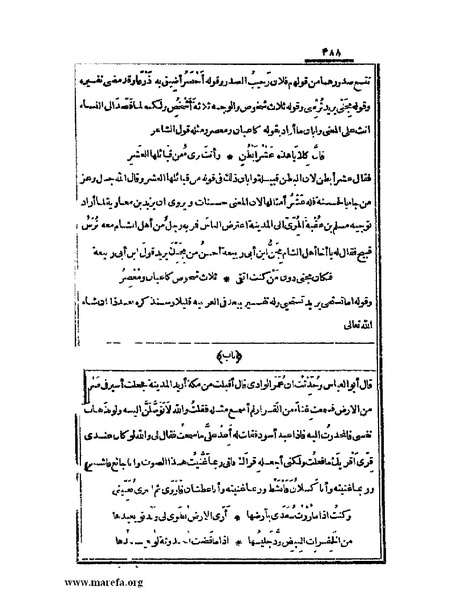 ٣٨٨
تتسع صدورهما من قولهم فلان رحيب الصدر وقوله أحصر أضيق به ذرعا وقد مضى تفسيره
وقوله مجني يريد ترسي وقوله ثلاثة شخوص والوجه ثلاثة أشخص ولكنه لما قصد الى النساء
انث على المعنى وابان ما أراد بقوله كاعبان ومعصر ومثله قول الشاعر
فان كلابا هذه عشر أبطن * وأنت بريء من قبائلها العشر
فقال عشر أبطن لان البطن قبيلة وابان ذلك في قوله من قبائلها العشر وقال الله جل وعز
من جاء بالحسنة فله عشر أمثالها لان المعنى حسنات ويروى ان يزيد بن معاوية لما أراد
توجيه مسلم بن عقبة المري الى المدينة اعترض الناس فمر به رجل من أهل الشام معه ترس
قبيح فقال له يا أخا أهل الشام مجن ابن أبي ربيعة أحسن من مجنك يريد قول ابن أبي ربيعة
فكان مجني دون من كنت اتقي * ثلاث شخوص كاعبان ومعصر
وقوله اما تستحي يريد تستحيي وله تفسير يبعد في العربية قليلا وسنذكره بعد هذا ان شاء
الله تعالى
﴿باب﴾
قال أبو العباس وحدثت ان عمر الوادي قال أقبلت من مكة أريد المدينة فجعلت أسير في صمد
من الارض فسمعت غناء من القرار لم أسمع مثله فقلت والله لأتوصلن اليه ولو بذهاب
نفسي فانحدرت اليه فاذا عبد أسود فقلت له أعد علي ما سمعت فقال لي والله لو كان عندي
قرى أقريك ما فعلت ولكني أجعله قراك فاني ربما غنيت هذا الصوت وانا جائع فأشبع
وربما غنيته وأنا كسلان فأنشط وربما غنيته وأنا عطشان فأروى ثم انبرى يغنيني
وكنت اذا ما زرت سعدى بأرضها * أرى الارض تطوى لي ويدنو بعيدها
من الخفرات البيض ود جليسها * اذا ما قضت أحدوثة لو يعيدها
www.marefa.org